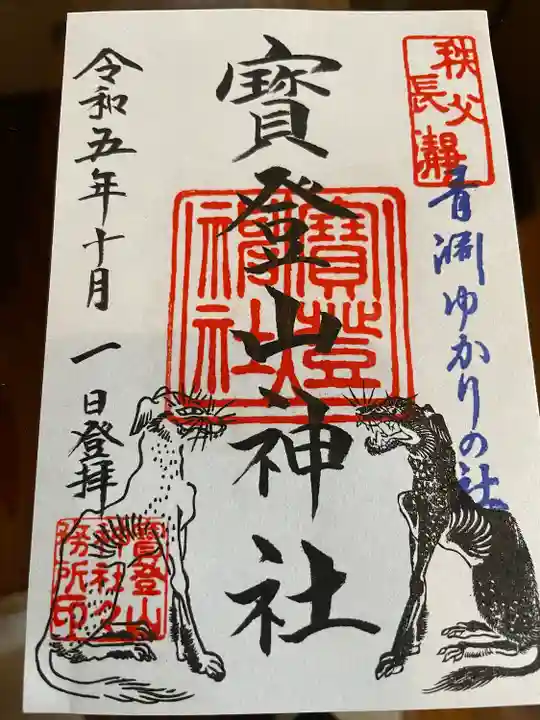 秩父
長瀞
青渊ゆかりの社
寳登山神社
寳登
山神社
令和五年十月一日登拝
寳登山
神社之
務所印